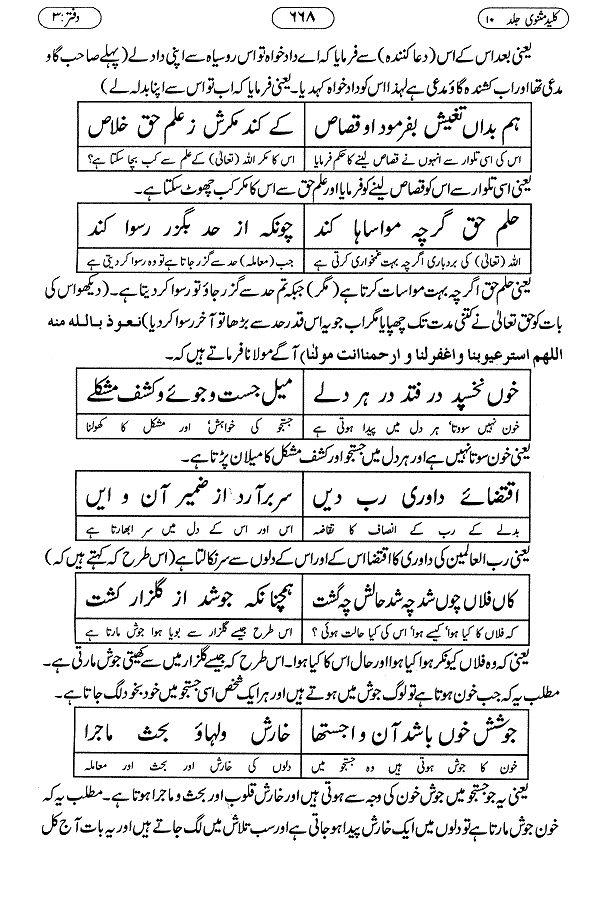 کلید مثنوی جلد ۱۰ ۶۶۸ دفتر:۳
یعنی بعد اس کے اس (دعا کنندہ) سے فرمایا کہ اے داد خواہ تو اس روسیاہ سے اپنی داد لے (پہلے صاحب گاؤ
مدعی تھا اور اب کشندہ گاؤ مدعی ہے لہٰذا اس کو داد خواہ کہدیا۔ یعنی فرمایا کہ اب تو اس سے اپنا بدلہ لے)
ہم بداں تغیش بفرمود او قصاص کے کند مکرش ز علم حق خلاص
اس کی اسی تلوار سے انہوں نے قصاص لینے کا حکم فرمایا اس کا مکر اللہ (تعالیٰ) کے علم سے کب بچا سکتا ہے؟
یعنی اسی تلوار سے اس کو قصاص لینے کو فرمایا اور علم حق سے اس کا مکر کب چھوٹ سکتا ہے۔
حلم حق گرچہ مواساہا کند چونکہ از حد بگزر رسوا کند
اللہ (تعالیٰ) کی بردباری اگرچہ بہت غمخواری کرتی ہے جب (معاملہ) حد سے گزر جاتا ہے تو وہ رسوا کر دیتی ہے
یعنی حلم حق اگرچہ بہت مواسات کرتا ہے (مگر) جبکہ تم حد سے گزر جاؤ تو رسوا کر دیتا ہے۔ (دیکھو اس کی
بات کو حق تعالیٰ نے کتنی مدت تک چھپایا مگر اب جو یہ اس قدر حد سے بڑھا تو آخر رسوا کر دیا) نعوذ باللہ منہ
اللھم استر عیوبنا و اغفرلنا و ارحمنا انت مولنا) آگے مولانا فرماتے ہیں کہ۔
خوں نخسپد در فتد در ہر دلے میل جست و جوئے و کشف مشکلے
خون نہیں سوتا' ہر دل میں پیدا ہوتی ہے جستجو کی خواہش' اور مشکل کا کھولنا
یعنی خون سوتا نہیں ہے اور ہر دل میں جستجو اور کشف مشکل کا میلان پڑتا ہے۔
اقتضائے داوری رب دیں سر برآرد از ضمیر آن و ایں
بدلے کے رب کے انصاف کا تقاضہ اس اور اس کے دل میں سر ابھارتا ہے
یعنی رب العالمین کی داوری کا اقتضا اس کے اور اس کے دلوں سے سر نکالتا ہے (اس طرح کہ کہتے ہیں کہ)
کاں فلاں چوں شد چہ شد حالش چہ گشت ہمچنانکہ جوشد از گلزار کشت
کہ فلاں کا کیا ہوا' کیسے ہوا' اس کی کیا حالت ہوئی؟ اس طرح جیسے گلزار سے بویا ہوا جوش مارتا ہے
یعنی کہ وہ فلاں کیونکر ہوا کیا ہوا اور حال اس کا کیا ہوا۔ اس طرح کہ جیسے گلزار میں سے کھیتی جوش مارتی ہے۔
مطلب یہ کہ جب خون ہوتا ہے تو لوگ جوش میں ہوتے ہیں اور ہر ایک شخص اسی جستجو میں خود بخود لگ جاتا ہے۔
جوشش خوں باشد آن و اجستہا خارش ولہاؤ بحث ماجرا
خون کا جوش ہوتی ہیں وہ جستجو میں دلوں کی خارش اور بحث اور معاملہ
یعنی یہ جو جستجو میں جوش خون کی وجہ سے ہوتی ہیں اور خارش قلوب اور بحث و ماجرا ہوتا ہے۔ مطلب یہ کہ
خون جوش مارتا ہے تو دلوں میں ایک خارش پیدا ہو جاتی ہے اور سب تلاش میں لگ جاتے ہیں اور یہ بات آج کل